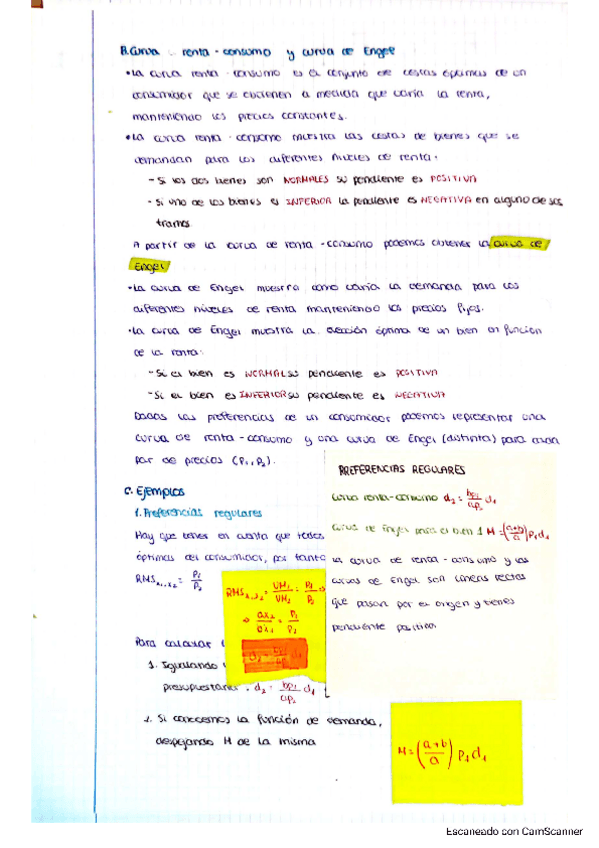 B. Curva renta - consumo y curva de Engel
• La curva renta - consumo es el conjunto de cestas óptimas de un
consumidor que se obtienen a medida que varía la renta,
manteniendo los precios constantes.
• La curva renta - consumo muestra las cestas de bienes que se
demandan para los diferentes niveles de renta:
- Si los dos bienes son NORMALES su pendiente es POSITIVA
- Si uno de los bienes es INFERIOR la pendiente es NEGATIVA en alguno de sus
tramos.
A partir de la curva de renta - consumo podemos obtener la curva de
Engel
• La curva de Engel muestra como varía la demanda para los
diferentes niveles de renta manteniendo los precios fijos.
• La curva de Engel muestra la elección óptima de un bien en función
de la renta:
- Si el bien es NORMAL su pendiente es POSITIVA
- Si el bien es INFERIOR su pendiente es NEGATIVA
Dadas las preferencias de un consumidor podemos representar una
curva de renta - consumo y una curva de Engel (distinta) para cada
par de precios (P₁, P₂).
C. Ejemplos
1. Preferencias regulares
Hay que tener en cuenta que todos
óptimas del consumidor, por tanto
RMS x₁,x₂ = P₁/P₂
RMS x₁,x₂ = UM₁/UM₂ = P₁/P₂ ⇒
⇒ ax₂/bx₁ = P₁/P₂
d₂ = bp₁/ap₂ d₁
Para calcular
1. Igualando
presupuestaria: d₂ = bp₁/ap₂ d₁
2. Si conocemos la función de demanda,
despejando M de la misma
PREFERENCIAS REGULARES
Curva renta-consumo d₂ = bp₁/ap₂ d₁
Curva de Engel para el bien 1 M = (a+b/a) p₁d₁
La curva de renta - consumo y las
curvas de Engel son líneas rectas
que pasan por el origen y tienen
pendiente positiva.
M = (a+b/a) P₁d₁
Escaneado con CamScanner